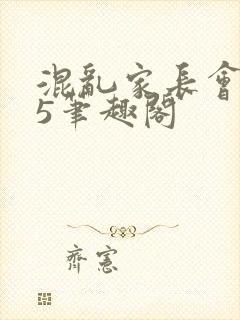 混亂家長會
5筆趣閣
齊憲